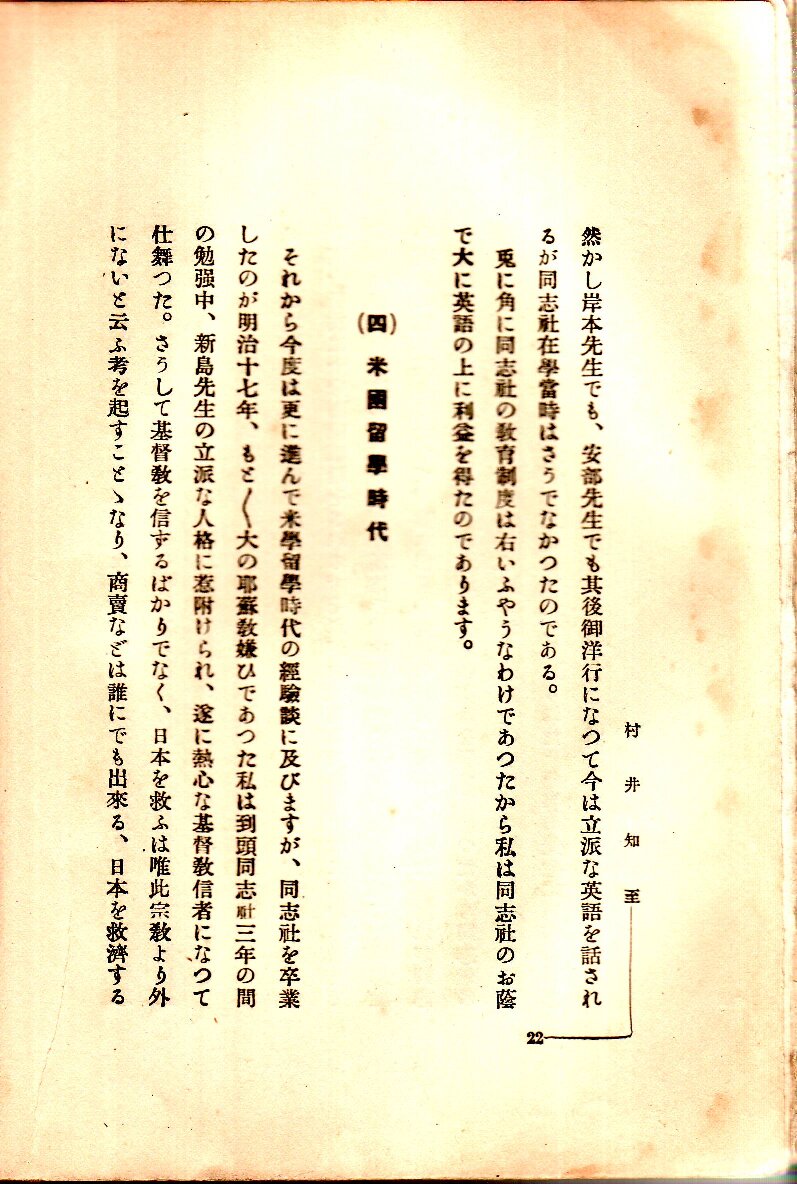 村井知至
22
然かし岸本先生でも、安部先生でも其後御洋行になつて今は立派な英語を話され
るが同志社在學當時はさうでなかつたのである。
兎に角に同志社の敎育制度は右いふやうなわけであつたから私は同志社のお蔭
で大に英語の上に利益を得たのであります。
(四)米國留學時代
それから今度は更に進んで米學留學時代の經驗談に及びますが、同志社を卒業
したのが明治十七年、もと〱大の耶蘇敎嫌ひであつた私は到頭同志社三年の間
の勉强中、新島先生の立派な人格に惹附けられ、遂に熱心な基督敎信者になつて
仕舞つた。さうして基督敎を信ずるばかりでなく、日本を救ふは唯此宗敎より外
にないと云ふ考を起すことゝなり、商賣などは誰にでも出來る、日本を救濟する